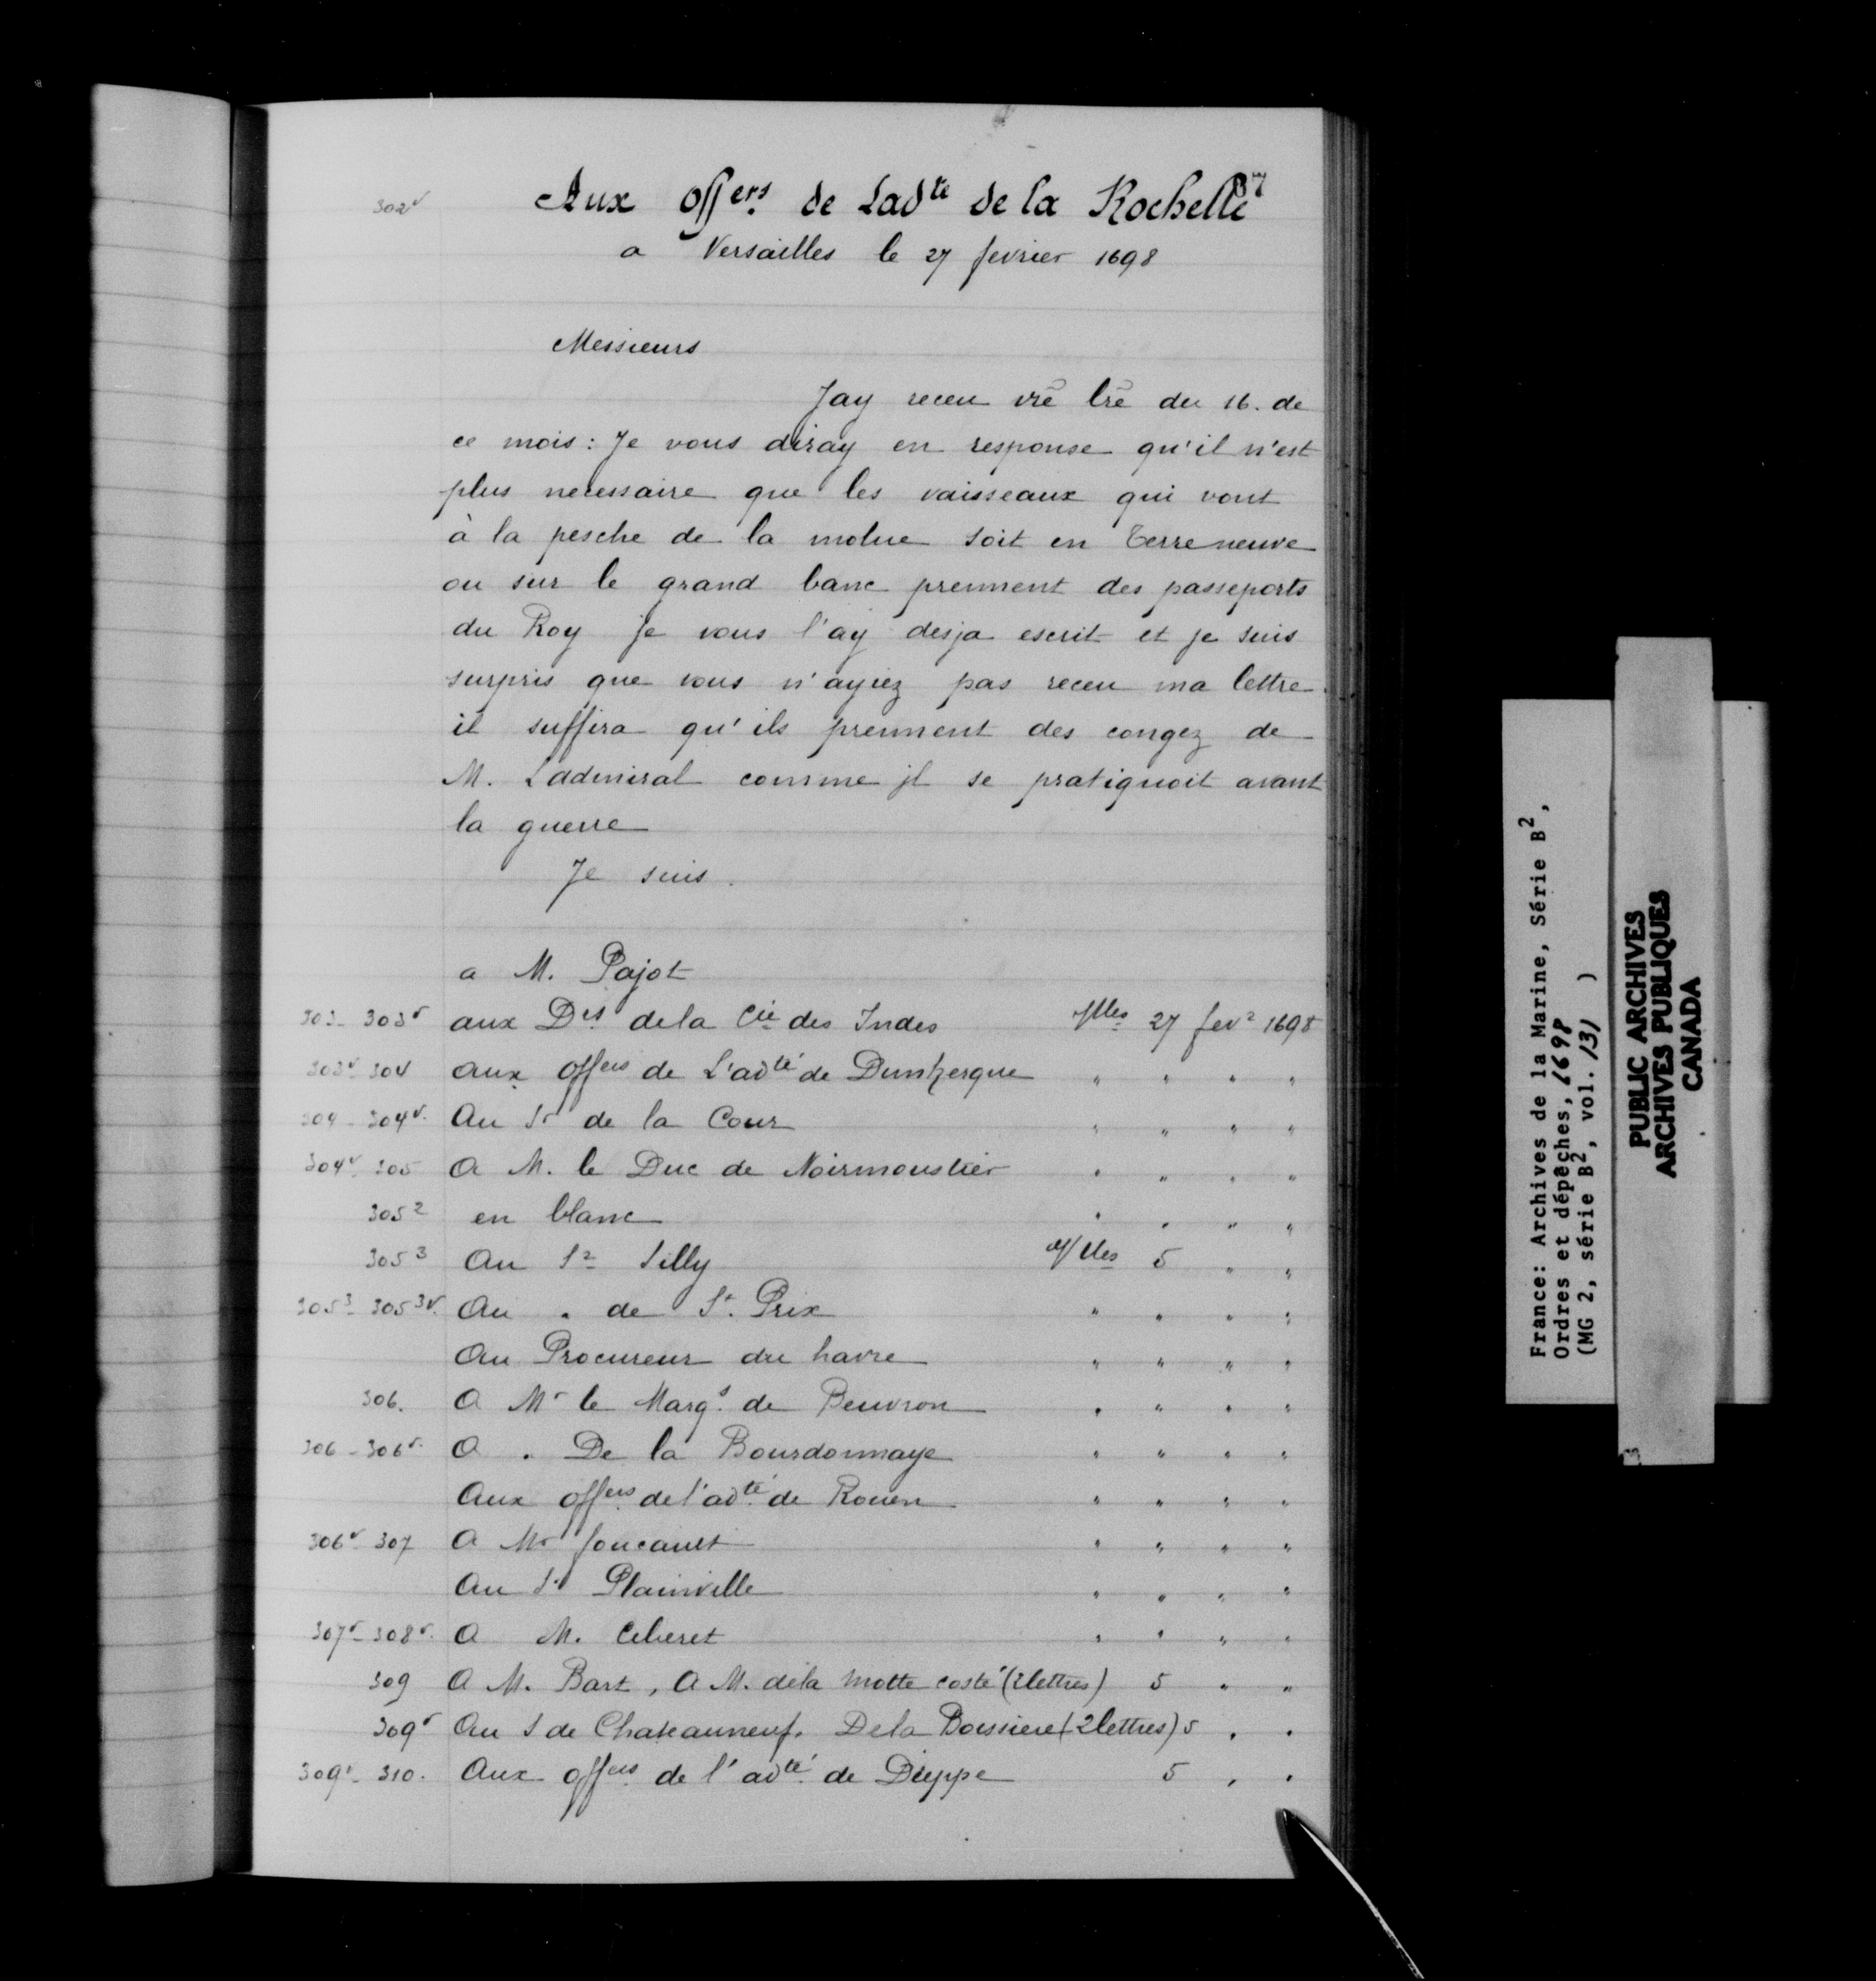 37
302v Aux offers. de Ladte de la Rochelle
a Versailles le 27 fevrier 1698
Messieurs
Jay receu vre lre du 16. de
ce mois : Je vous diray en response qu'il n'est
plus necessaire que les vaisseaux qui vont
à la pesche de la molue soit en Terreneuve
ou sur le grand banc prennent des passeports
du Roy je vous l'ay desja escrit et je suis
surpris que vous n'ayiez pas receu ma lettre
il suffira qu'ils prennent des congez de
M. Ladmiral comme jl se pratiquoit avant
la guerre
Je suis.
a M. Pajot
303- 303v aux Drs de la Cie des Indes Vlles 27 fevr 1698
303v 304 aux offers de L'adté de Dunkerque " " " "
304 - 304v. Au Sr de la Cour " " " "
304v 305 A M. le Duc de Noirmoustier " " " "
305 2 en blanc " " " "
305 3 Au Sr Silly Vlles 5 " "
305 3- 305 3v. Au " de St. Prix " " " "
Au Procureur du havre " " " "
306. A Mr le Marqs. de Beuvron " " " "
306 - 306v. A " De la Bourdonnaye " " " "
Aux offers de l'adté de Rouen " " " "
306v- 307 A Mr foucault " " " "
Au Sr Plainville " " " "
307v- 308v. A M. Ceberet " " " "
309 A M. Bart, A M. de la Motte costé (2 lettres) 5 " "
309v Au S de Chateauneuf. De la Boissiere (2 lettres) 5 " "
309v- 310. Aux offers de l'adté de Dieppe 5 " "
France: Archives de la Marine, Série B2,
Ordres et dépêches, 1698
(MG 2, série B2, vol. 131 )
PUBLIC ARCHIVES
ARCHIVES PUBLIQUES
CANADA
3